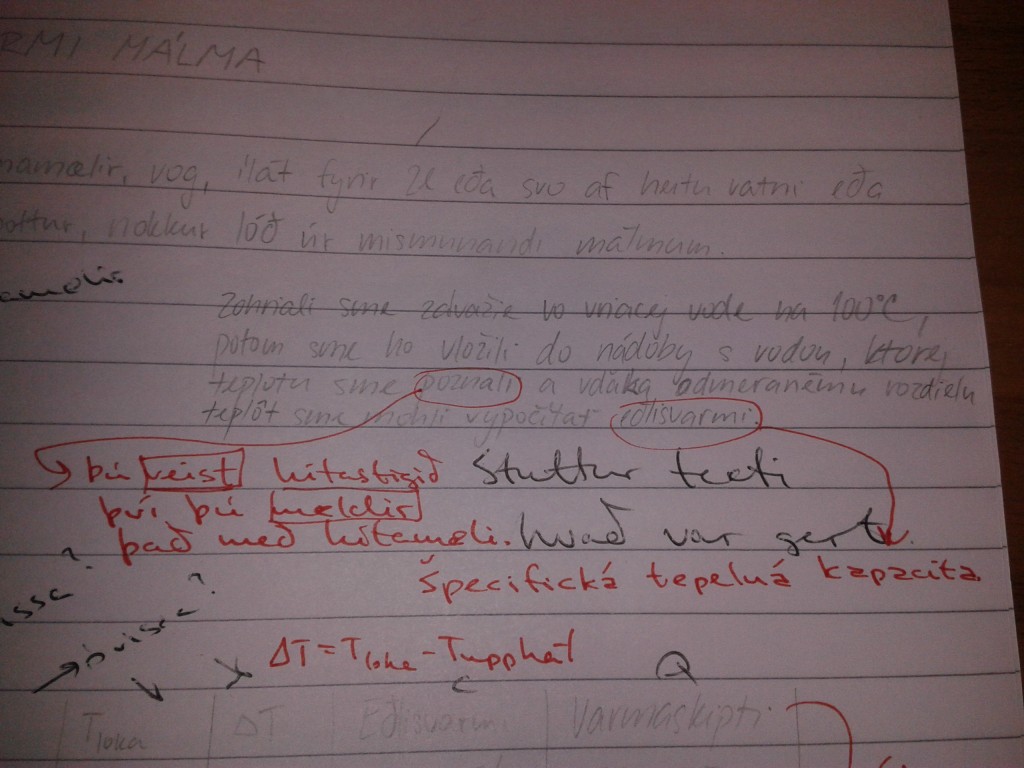 RMI MÁLMA
mamælir, vog, ílát fyrir 2l eða svo af heitu vatni eða
pottur, nokkur lóð úr mismunandi málmum.
Zohriali sme zdvažie vo vriacej vode na 100°C,
potom sme ho vložili do nádoby s vodou, ktorej
teplotu sme poznali a vďaka odmeranému rozdielu
teplôt sme mohli vypočítať eðlisvarmi.
þú veist hitastigið Stuttur texti
því þú mældir
það með hitamæli. hvað var gert.
špecifická tepelná kapacita
issa?
óvissa?
ΔT = Tloka - Tupphaf
Q
Tloka ΔT Eðlisvarmi Varmaskipti